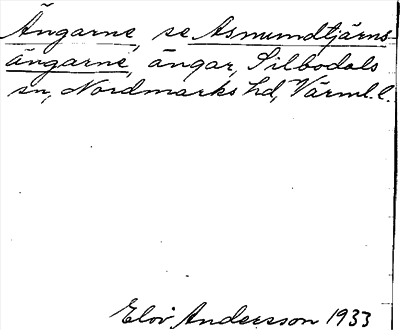 Ängarne, se Asmundtjärns-
ängarne, ängar, Silbodals
sn, Nordmarks hd, Värml. l.
Elov Andersson 1933